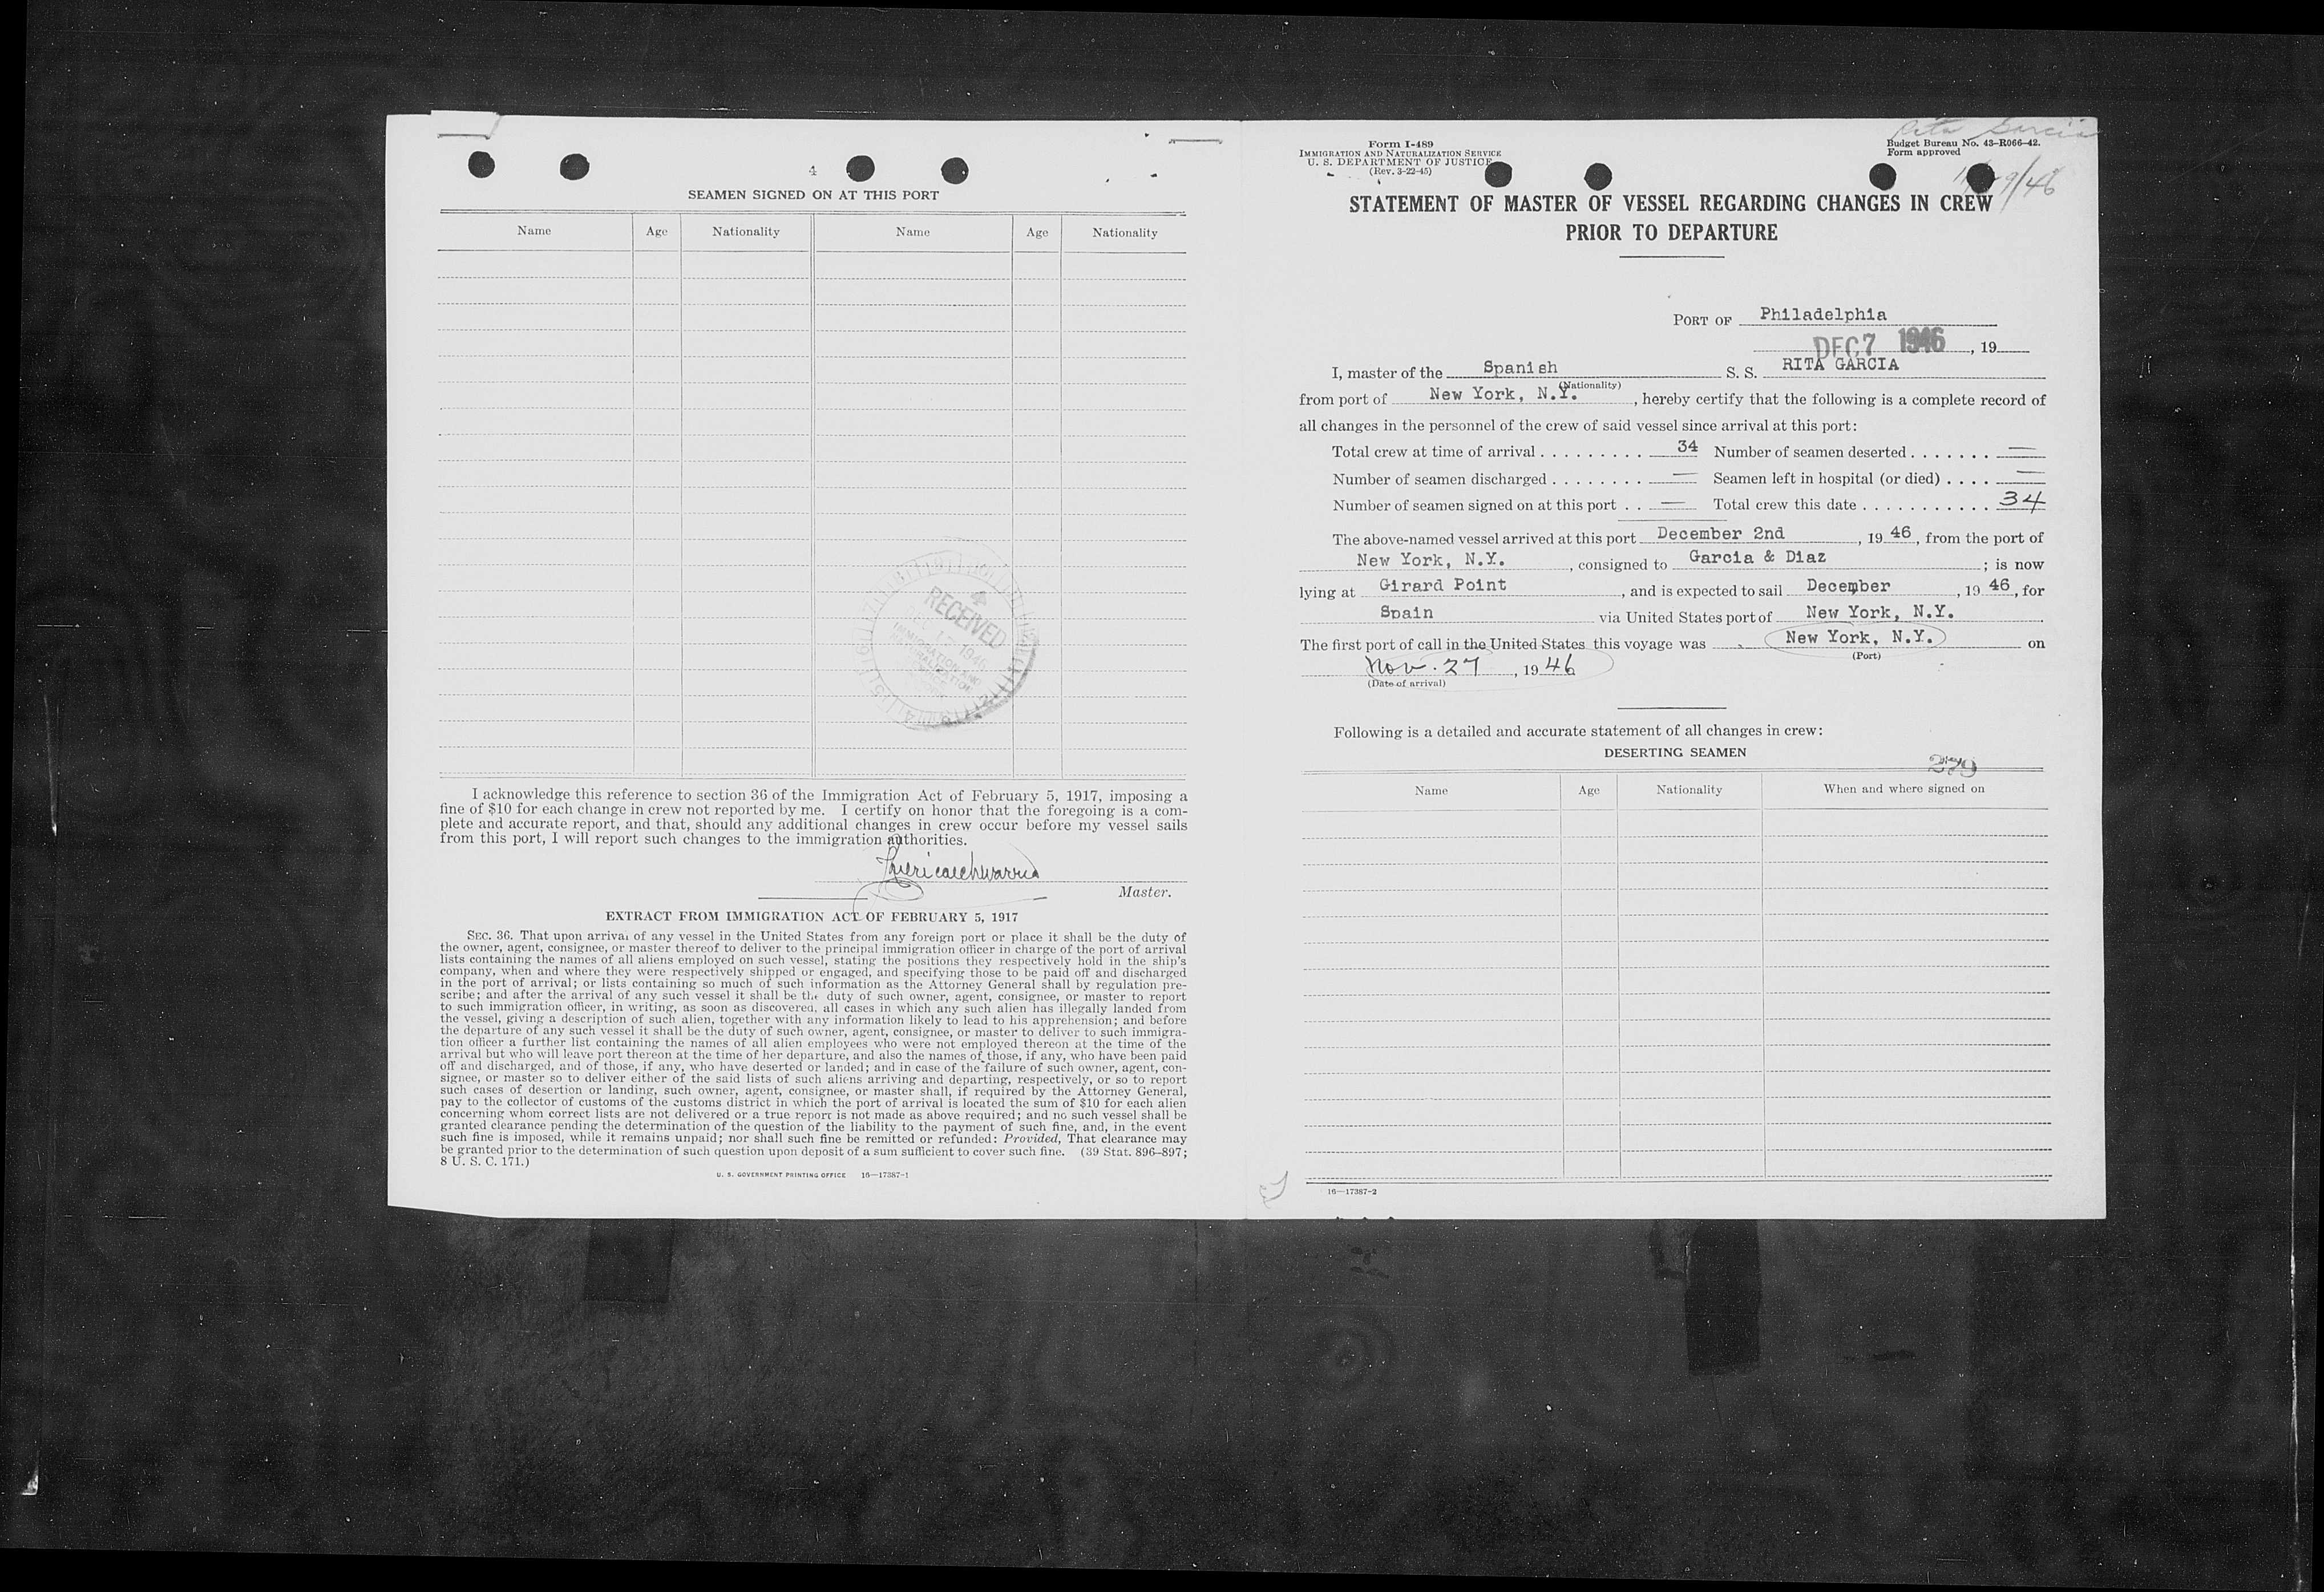 4
SEAMEN SIGNED ON AT THIS PORT
Name Age Nationality Name Age Nationality
RECEIVED
1946
IMMIGRATION AND
I acknowledge this reference to section 36 of the Immigration Act of February 5, 1917, imposing a
fine of $10 for each change in crew not reported by me. I certify on honor that the foregoing is a com-
plete and accurate report, and that, should any additional changes in crew occur before my vessel sails
from this port, I will report such changes to the immigration authorities.
Master.
EXTRACT FROM IMMIGRATION ACT OF FEBRUARY 5, 1917
SEC. 36. That upon arrival of any vessel in the United States from any foreign port or place it shall be the duty of
the owner, agent, consignee, or master thereof to deliver to the principal immigration officer in charge of the port of arrival
lists containing the names of all aliens employed on such vessel, stating the positions they respectively hold in the ship's
company, when and where they were respectively shipped or engaged, and specifying those to be paid off and discharged
in the port of arrival; or lists containing so much of such information as the Attorney General shall by regulation pre-
scribe; and after the arrival of any such vessel it shall be the duty of such owner, agent, consignee, or master to report
to such immigration officer, in writing, as soon as discovered, all cases in which any such alien has illegally landed from
the vessel, giving a description of such alien, together with any information likely to lead to his apprehension; and before
the departure of any such vessel it shall be the duty of such owner, agent, consignee, or master to deliver to such immigra-
tion officer a further list containing the names of all alien employees who were not employed thereon at the time of the
arrival but who will leave port thereon at the time of her departure, and also the names of those, if any, who have been paid
off and discharged, and of those, if any, who have deserted or landed; and in case of the failure of such owner, agent, con-
signee, or master so to deliver either of the said lists of such aliens arriving and departing, respectively, or so to report
such cases of desertion or landing, such owner, agent, consignee, or master shall, if required by the Attorney General,
pay to the collector of customs of the customs district in which the port of arrival is located the sum of $10 for each alien
concerning whom correct lists are not delivered or a true report is not made as above required; and no such vessel shall be
granted clearance pending the determination of the question of the liability to the payment of such fine, and, in the event
such fine is imposed, while it remains unpaid; nor shall such fine be remitted or refunded: Provided, That clearance may
be granted prior to the determination of such question upon deposit of a sum sufficient to cover such fine. (39 Stat. 896–897;
8 U. S. C. 171.)
U. S. GOVERNMENT PRINTING OFFICE 16—17387-1
Rita Garcia
Form I-489
IMMIGRATION AND NATURALIZATION SERVICE
U. S. DEPARTMENT OF JUSTICE
(Rev. 3-22-45)
Budget Bureau No. 43–R066–42.
Form approved
STATEMENT OF MASTER OF VESSEL REGARDING CHANGES IN CREW
PRIOR TO DEPARTURE
PORT OF Philadelphia
DEC 7 1946, 19
I, master of the Spanish S. S. RITA GARCIA
(Nationality)
from port of New York, N.Y., hereby certify that the following is a complete record of
all changes in the personnel of the crew of said vessel since arrival at this port:
Total crew at time of arrival . . . . . . . . . 34 Number of seamen deserted . . . . . . . —
Number of seamen discharged . . . . . . . . — Seamen left in hospital (or died) . . . . —
Number of seamen signed on at this port . . — Total crew this date . . . . . . . . . . . 34
The above-named vessel arrived at this port December 2nd, 19 46, from the port of
New York, N.Y., consigned to Garcia & Diaz; is now
lying at Girard Point, and is expected to sail December, 19 46, for
Spain via United States port of New York, N.Y.
The first port of call in the United States this voyage was New York, N.Y. on
(Port)
Nov. 27, 19 46
(Date of arrival)
Following is a detailed and accurate statement of all changes in crew:
DESERTING SEAMEN
279
Name Age Nationality When and where signed on
16—17387-2